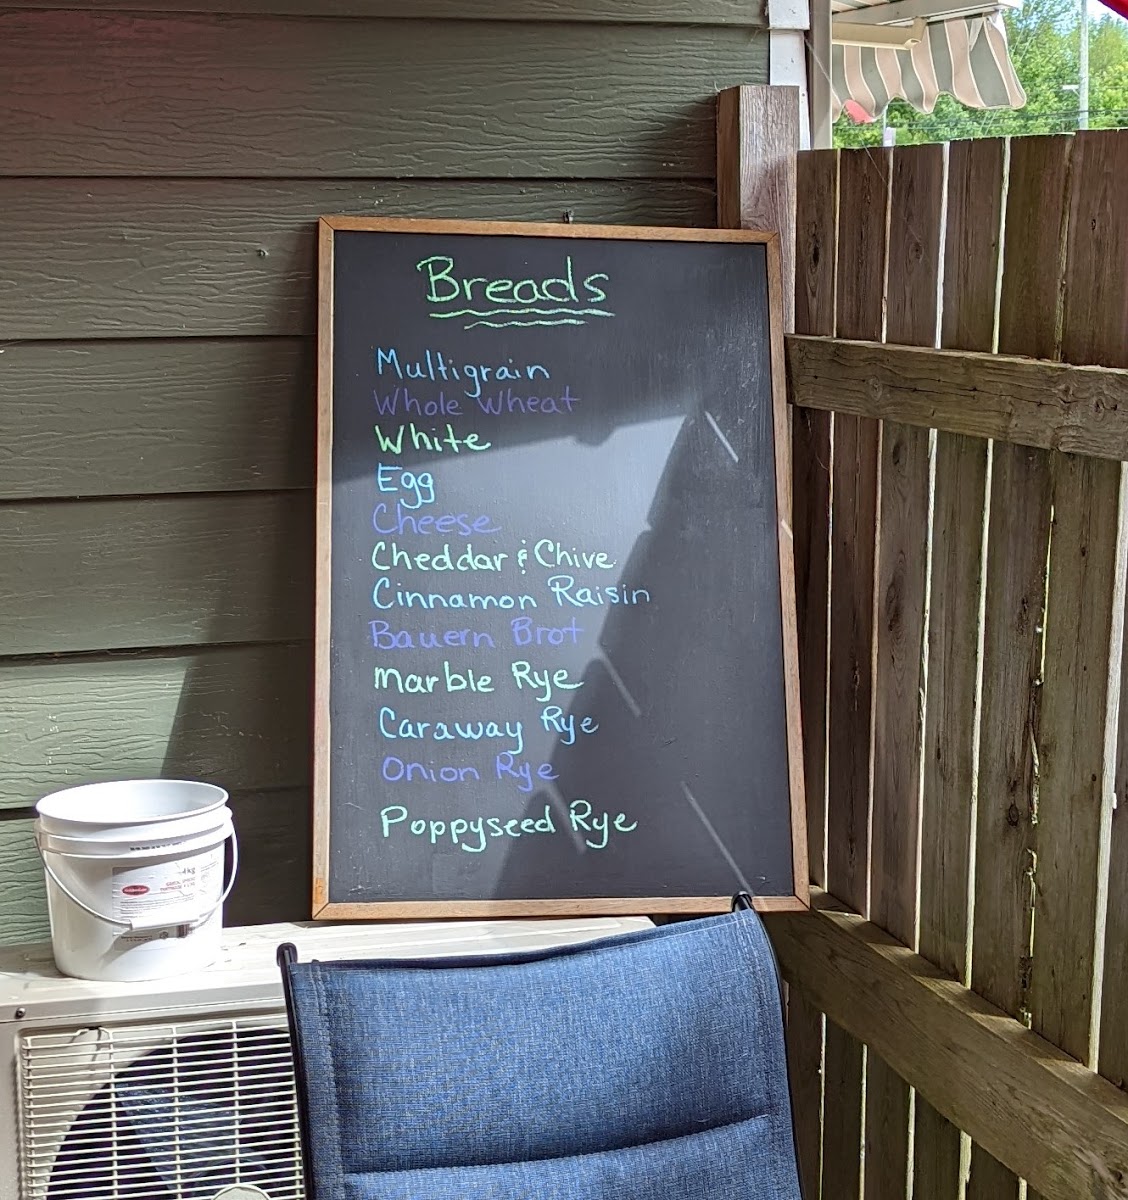 Breads
Multigrain
Whole Wheat
White
Egg
Cheese
Cheddar & Chive
Cinnamon Raisin
Bauern Brot
Marble Rye
Caraway Rye
Onion Rye
Poppyseed Rye
4kg